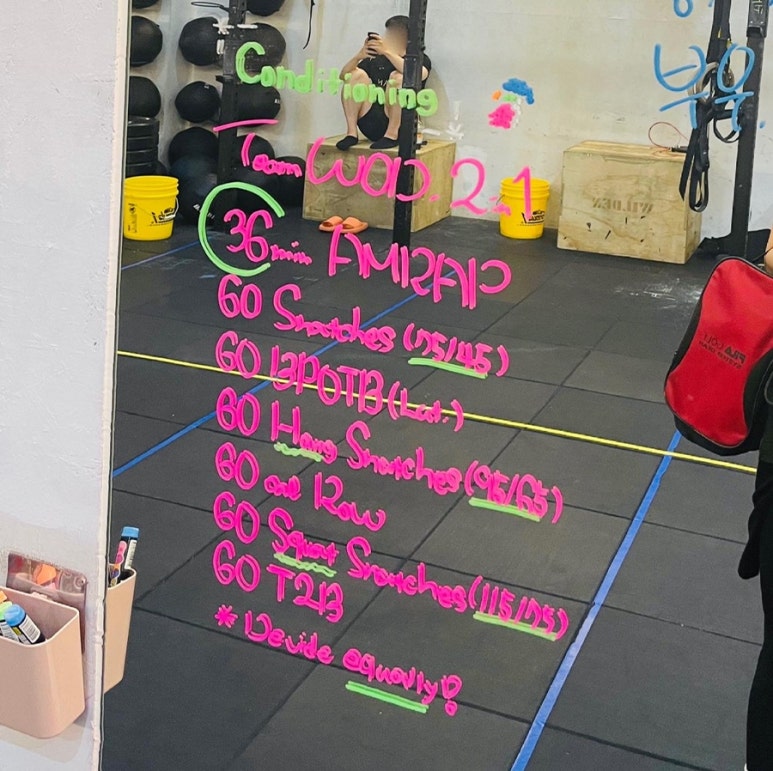 Conditioning
Team WOD. 2:1
36min AMRAP
60 Snatches (75/45)
60 BPOTB (Lat.)
60 Hang Snatches (95/65)
60 cal Row
60 Squat Snatches (115/75)
60 T2B
* Devide equally!
WILDEX